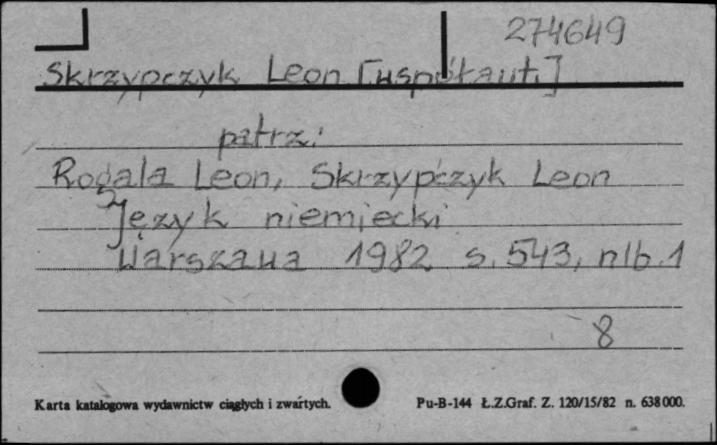 274649
Skrzypczyk Leon [współaut.]
patrz:
Rogala Leon, Skrzypczyk Leon
Język niemiecki
Warszawa 1982 s. 543, nlb. 1
8
Karta katalogowa wydawnictw ciągłych i zwartych. Pu-B-144 Ł.Z.Graf. Z. 120/15/82 n. 638000.